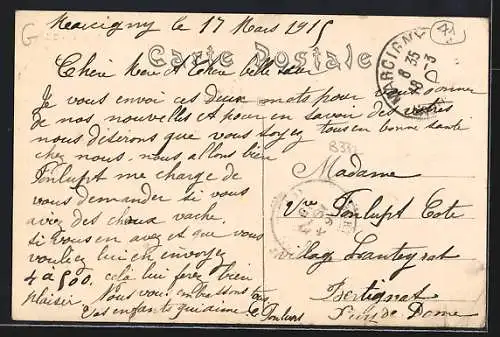 Marcigny le 17 Mars 1915
Carte Postale
Chère Mère et Chère belle sœur
Je vous envoi ces deux mots pour vous donner
de nos nouvelles et pour en savoir des votres
nous désirons que vous soyez tous en bonne santé
chez nous nous allons bien
Fonlupt me charge de
vous demander si vous
avez des choux vache
si vous en avez et que vous
vouliez lui en envoyez
4 a 500 celà lui ferez bien
plaisir Nous vous embrassons tous
enfants qui aime
Madame
Vve Fonlupt Cote
village Lanteyrat
Bertignat
Puy de Dome
MARCIGNY